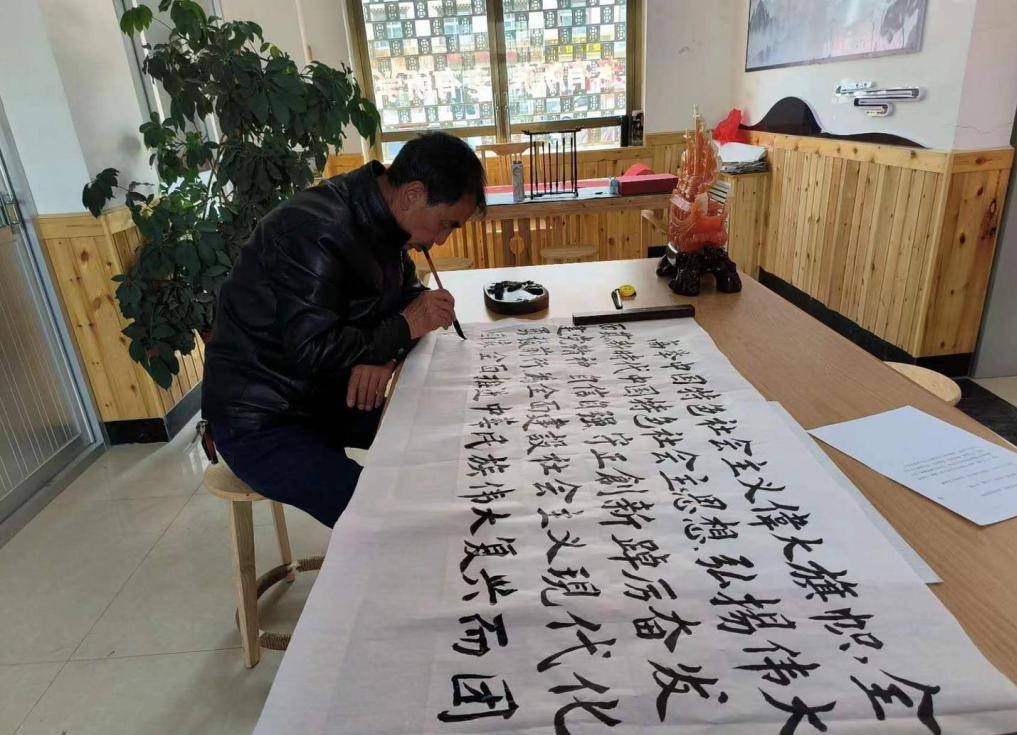 高举中国特色社会主义偉大旗帜,全
面贯彻新时代中国特色社会主思想,弘揚伟大
建党精神自信自强守正創新踔厉奋发
勇毅前行为全面建設社会主义現代化
国家全面推进中華民族伟大复兴而团